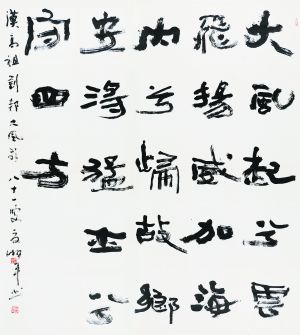 大風起兮雲
飛揚威加海
內兮歸故鄉
安得猛士兮
守四方
漢高祖劉邦大風歌 八十一叟夏湘平书